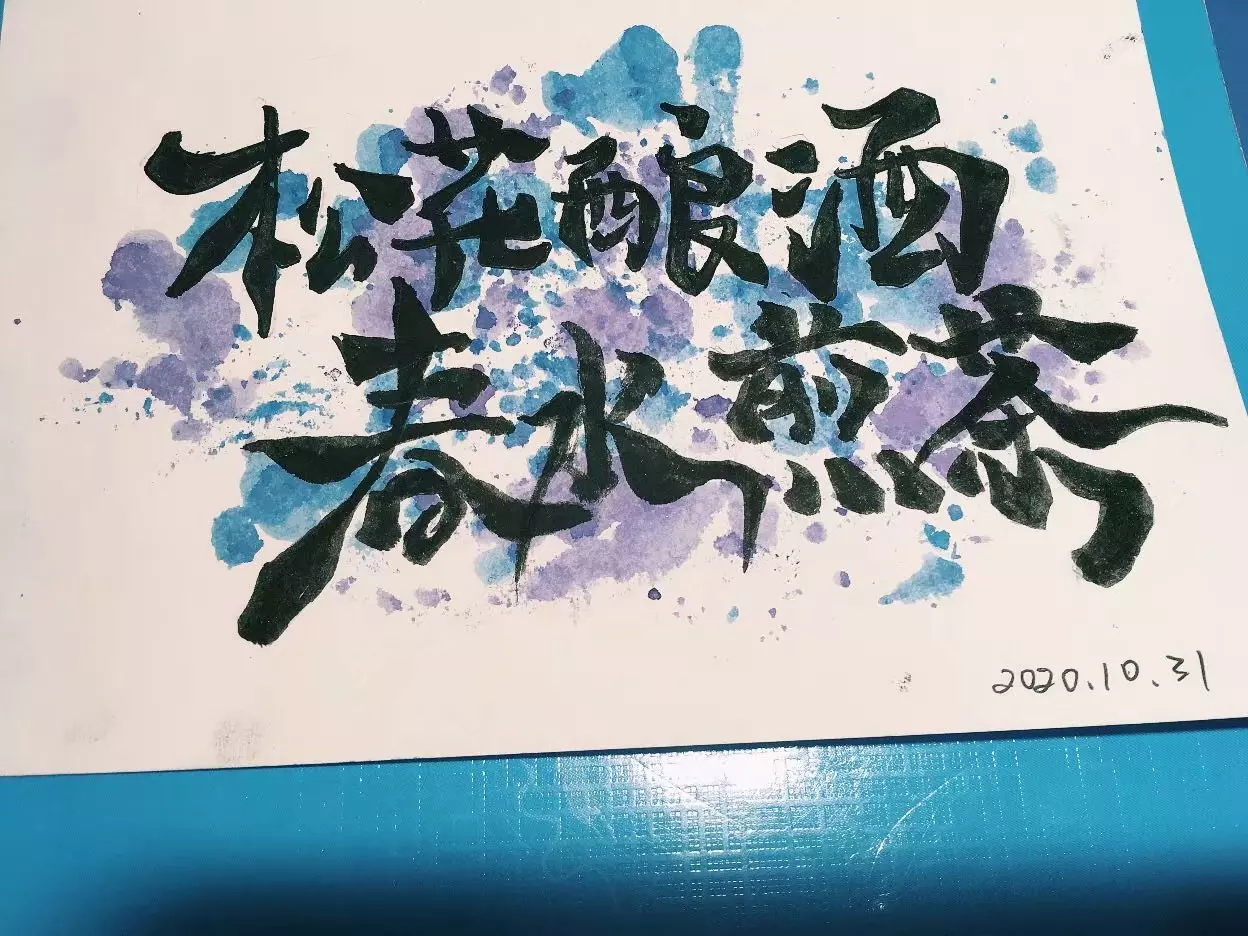 松花酿酒
春水煎茶
2020.10.31